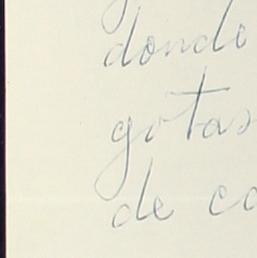 donde
gotas
de co